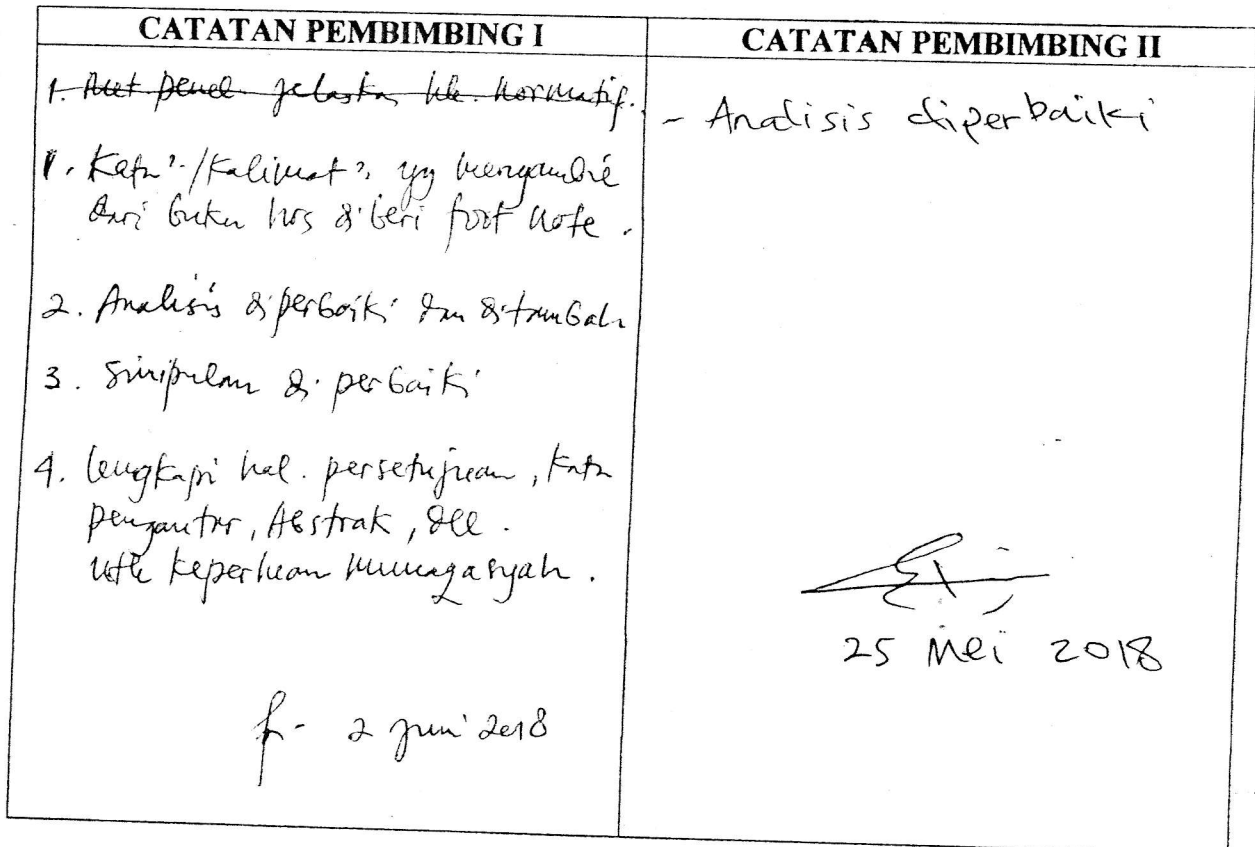 CATATAN PEMBIMBING I
1. Met penel. jelaskan hk. normatif.
1. Kata²/Kalimat², yg mengambil
dari buku hrs diberi foot note.
2. Analisis diperbaiki dan ditambah
3. Simpulan diperbaiki
4. lengkapi hal. persetujuan, kata
pengantar, Abstrak, dll.
utk keperluan munaqasyah.
2 Juni 2018
CATATAN PEMBIMBING II
- Analisis diperbaiki
25 Mei 2018